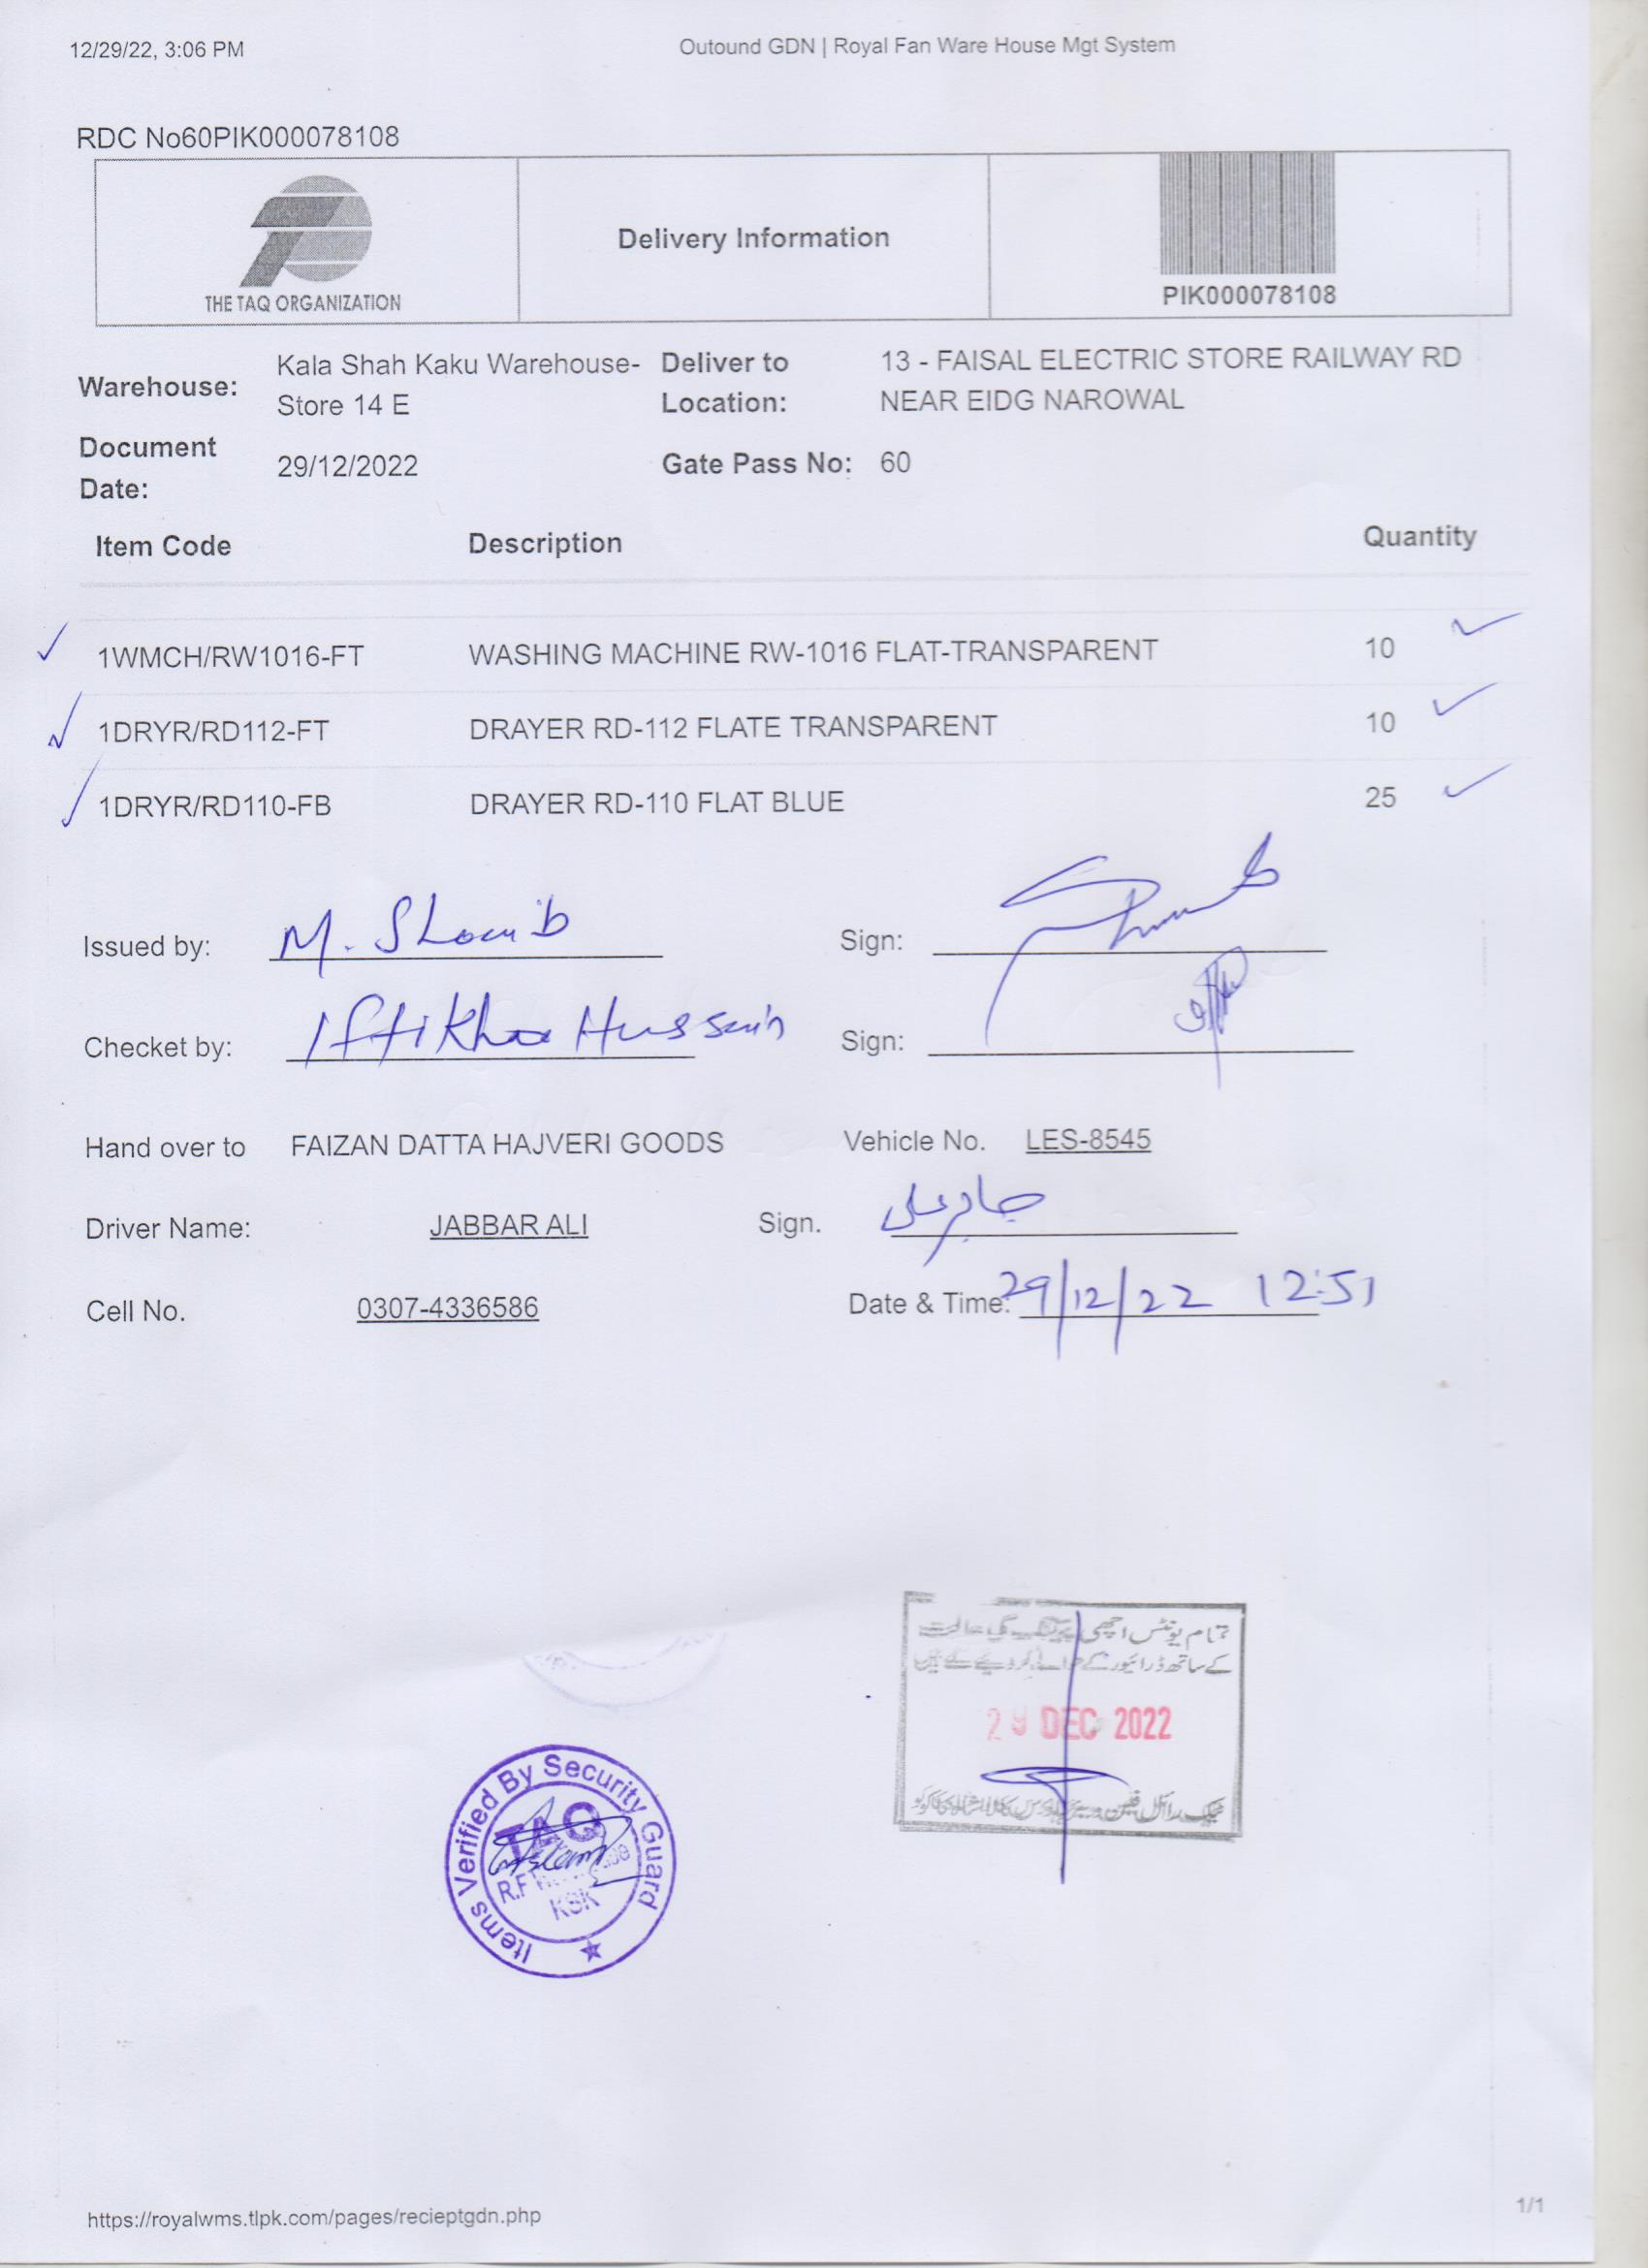 12/29/22, 3:06 PM Outound GDN | Royal Fan Ware House Mgt System
RDC No60PIK000078108
THE TAQ ORGANIZATION
Delivery Information
PIK000078108
Warehouse: Kala Shah Kaku Warehouse-Store 14 E
Deliver to Location: 13 - FAISAL ELECTRIC STORE RAILWAY RD NEAR EIDG NAROWAL
Document Date: 29/12/2022 Gate Pass No: 60
Item Code Description Quantity
1WMCH/RW1016-FT WASHING MACHINE RW-1016 FLAT-TRANSPARENT 10
1DRYR/RD112-FT DRAYER RD-112 FLATE TRANSPARENT 10
1DRYR/RD110-FB DRAYER RD-110 FLAT BLUE 25
Issued by: M. Shoaib Sign:
Checket by: Iftikhar Hussain Sign:
Hand over to FAIZAN DATTA HAJVERI GOODS Vehicle No. LES-8545
Driver Name: JABBAR ALI Sign.
Cell No. 0307-4336586 Date & Time: 29/12/22 12:51
تمام یونٹس اچھی حالت
کے ساتھ ڈرائیور کے حوالے کر دیئے گئے ہیں
29 DEC 2022
Items Verified By Security Guard
TAQ
R.F
KSK
https://royalwms.tlpk.com/pages/recieptgdn.php 1/1